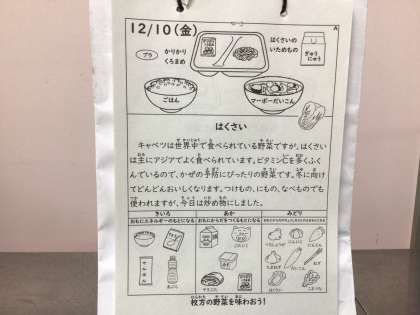 12/10(金)
A
プラ
かりかり
くろまめ
はくさいの
いためもの
ぎゅう
にゅう
ごはん
マーボーだいこん
はくさい
キャベツは世界中で食べられている野菜ですが、はくさい
は主にアジアでよく食べられています。ビタミンCを多くふく
んでいるので、かぜの予防にぴったりの野菜です。冬に向け
てどんどんおいしくなります。つけもの、にもの、なべものでも
使われますが、今日は炒め物にしました。
きいろ
あか
みどり
おもにエネルギーのもとになる
おもにからだをつくるもとになる
枚方の野菜を味わおう!